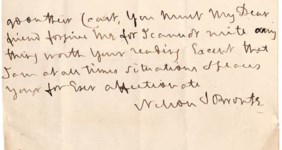 on their Coast, You must My Dear
friend forgive Me for I cannot write any
thing worth Your reading Except that
I am at all times situations & places
your for Ever affectionate
Nelson & Bronte